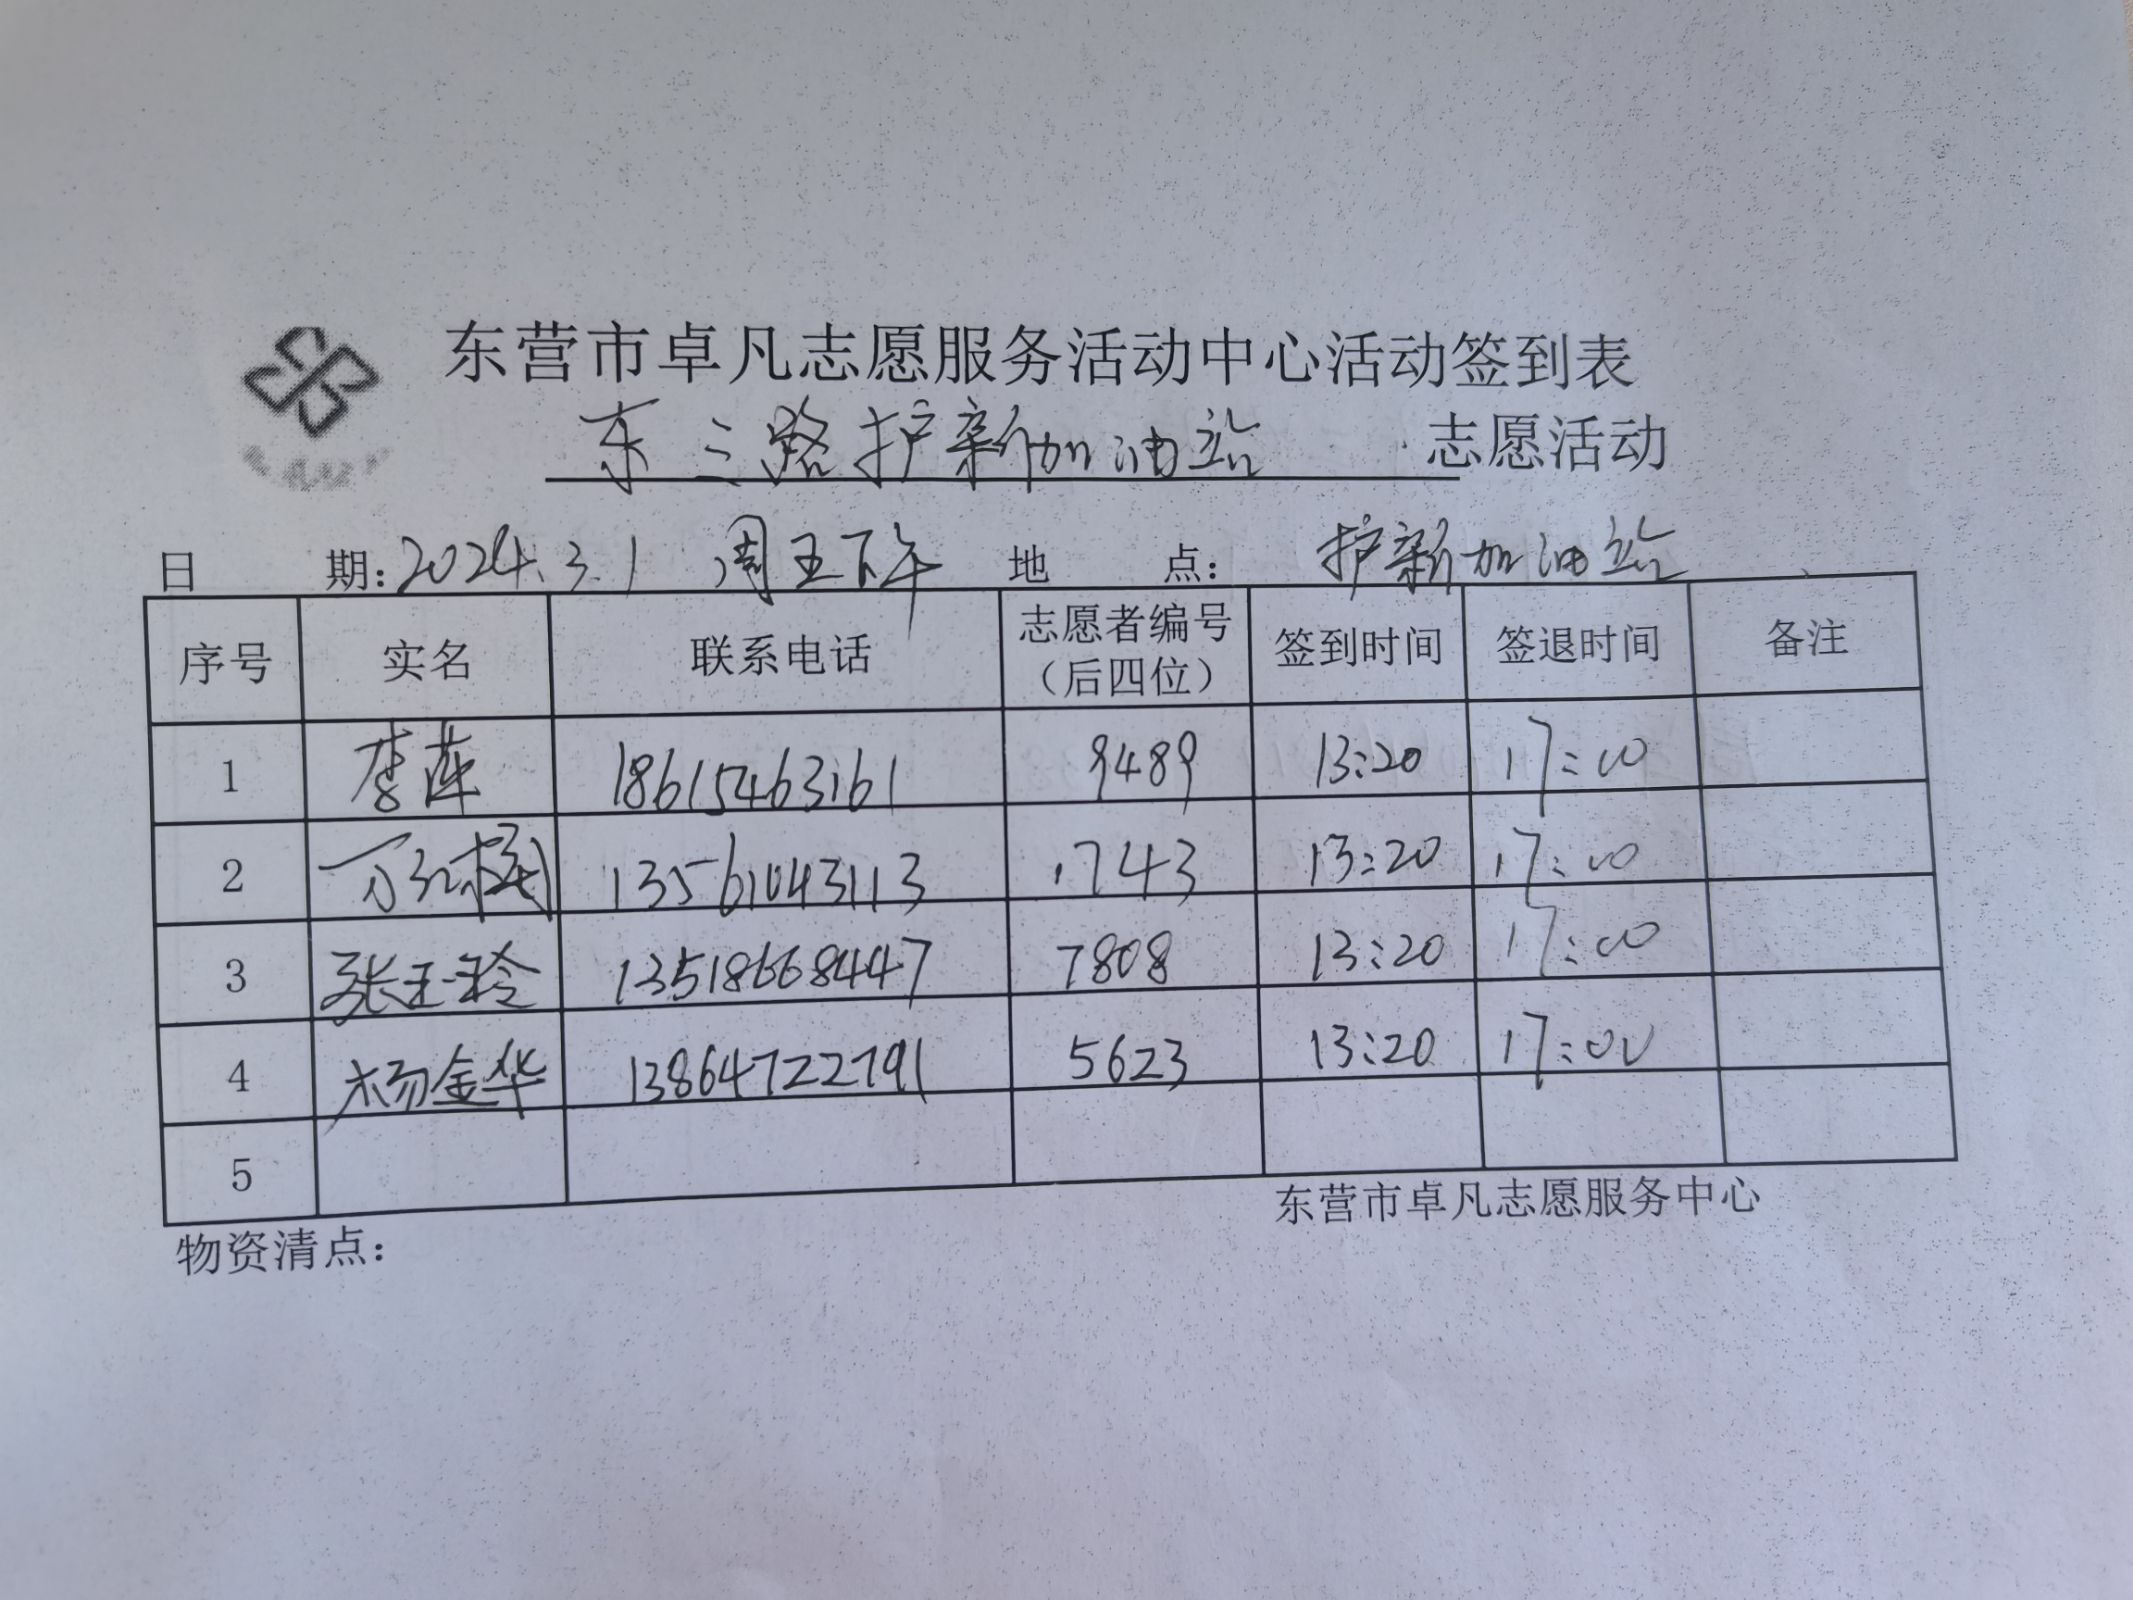 东营市卓凡志愿服务活动中心活动签到表
东三路护新加油站 志愿活动
日 期：2024.3.1 周五下午 地 点： 护新加油站
序号 实名 联系电话 志愿者编号（后四位） 签到时间 签退时间 备注
1 李莲 18615463161 9489 13:20 17:00
2 万 13561043113 1743 13:20 17:00
3 张玉玲 13518668447 7808 13:20 17:00
4 杨金华 13864722791 5623 13:20 17:00
5
东营市卓凡志愿服务中心
物资清点：